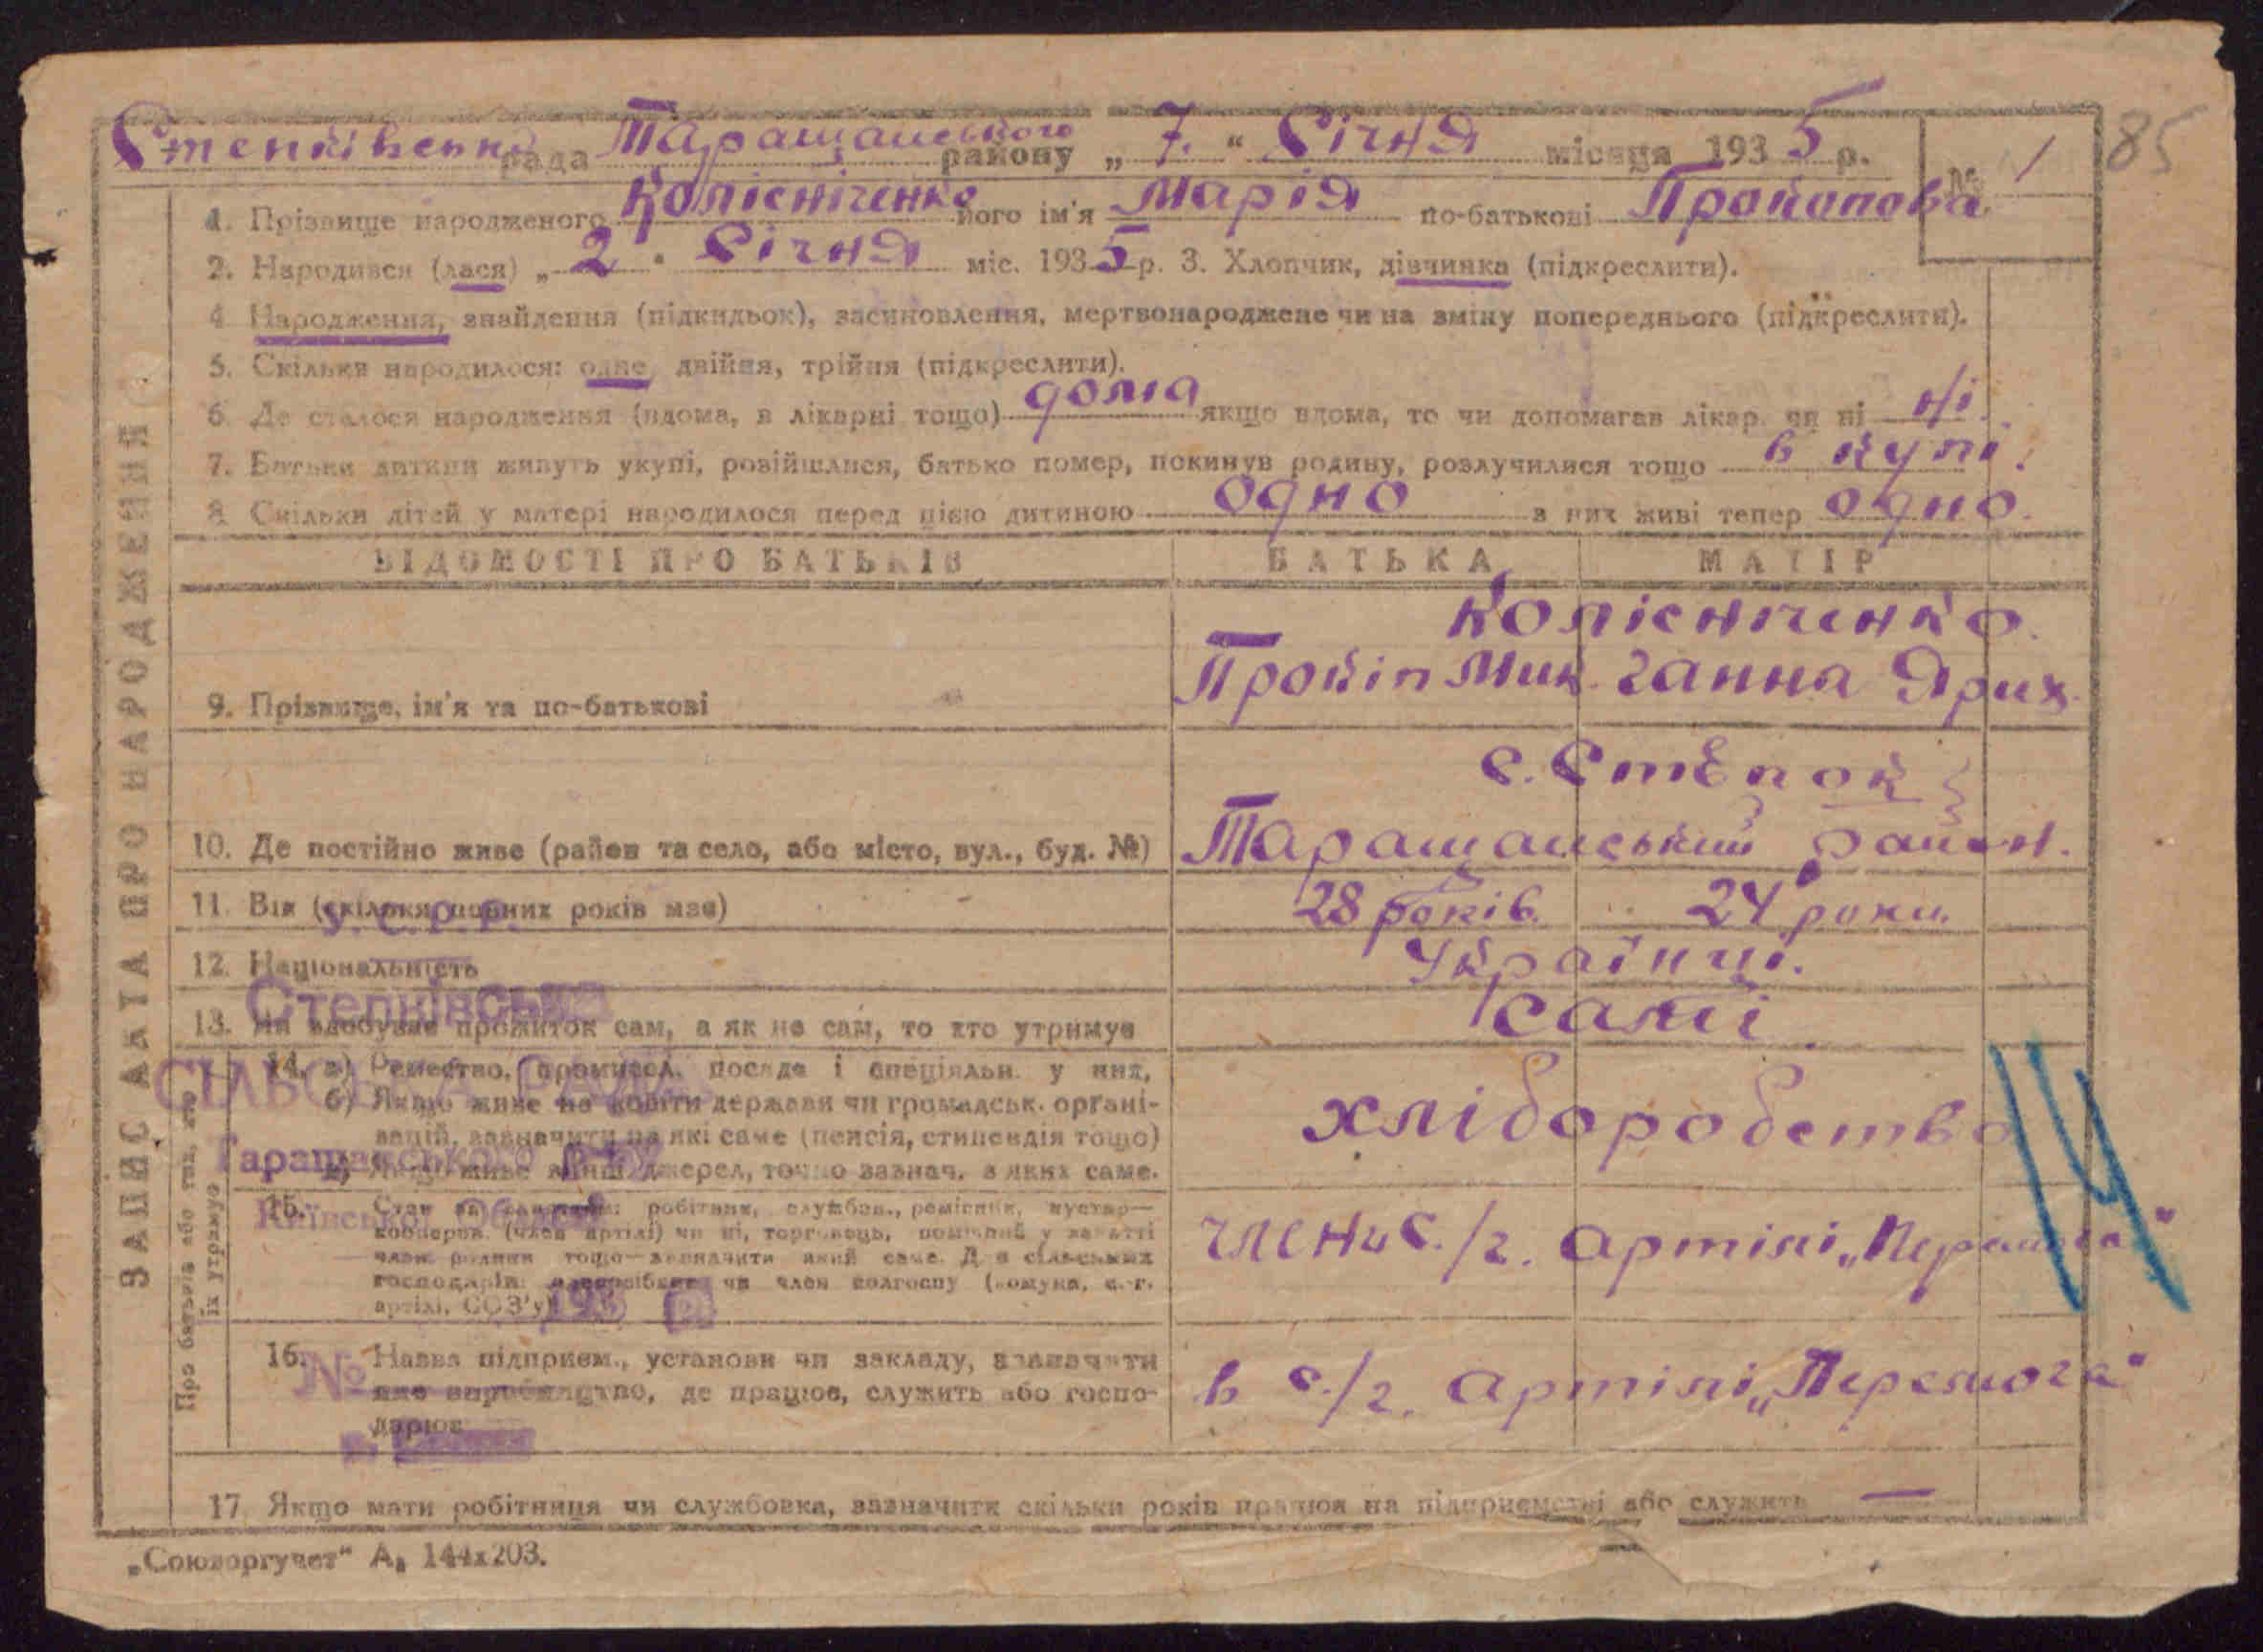 Степківська рада Таращанського району „ 7. “ Січня місяця 1935 р. № 1 85
ЗАПИС АКТА ПРО НАРОДЖЕННЯ
1. Прізвище народженого Колісніченко його ім'я Марія по-батькові Прокопова.
2. Народився (лася) „ 2 “ Січня міс. 1935 р. 3. Хлопчик, дівчинка (підкреслити).
4 Народження, знайдення (підкидьок), засиновлення, мертвонароджене чи на зміну попереднього (підкреслити).
5. Скільки народилося: одне, двійня, трійня (підкреслити).
6. Де сталося народження (вдома, в лікарні тощо) дома якщо вдома, то чи допомагав лікар. чи ні ні.
7. Батьки дитини живуть укупі, розійшлися, батько помер, покинув родину, розлучилися тощо в купі.
8. Скільки дітей у матері народилося перед цією дитиною одно з них живі тепер одно.
ВІДОМОСТІ ПРО БАТЬКІВ БАТЬКА МАТІР
Колісніченко.
9. Прізвище, ім'я та по-батькові Прокіп Мик. Ганна Ярих.
с. Степок
10. Де постійно живе (район та село, або місто, вул., буд. №) Таращанський район.
11. Вік (скільки повних років має) 28 років. 24 роки.
У. С. Р. Р.
12. Національність Українці.
Степківська
13. Чи здобуває прожиток сам, а як не сам, то хто утримує самі
Про батьків або тих, хто їх утримує
14. а) Ремество, промисел, посада і спеціяльн. у них,
СІЛЬСЬКА РАДА
б) Якщо живе на кошти держави чи громадськ. органі-
зацій, зазначити на які саме (пенсія, стипендія тощо) хліборобство
Таращанського р-ну
в) Якщо живе з інш. джерел, точно зазнач. з яких саме.
Київської Області
15. Стан на занятті: робітник, службов., ремісник, кустар—
кооперов. (член артілі) чи ні, торговець, помічний у занятті
член родини тощо—зазначити який саме. Для сільських члени с./г. артілі „Перемога“
господарів: одноосібник чи член колгоспу (комуна, с.-г.
артілі, СОЗ'у)
193 р.
14
16. Назва підприєм., установи чи закладу, зазначити
№
яке виробництво, де працює, служить або госпо- в с./г. артілі „Перемога“
дарює
17. Якщо мати робітниця чи службовка, зазначити скільки років працює на підприємстві або служить —
„Союзоргучет“ А₅ 144х203.